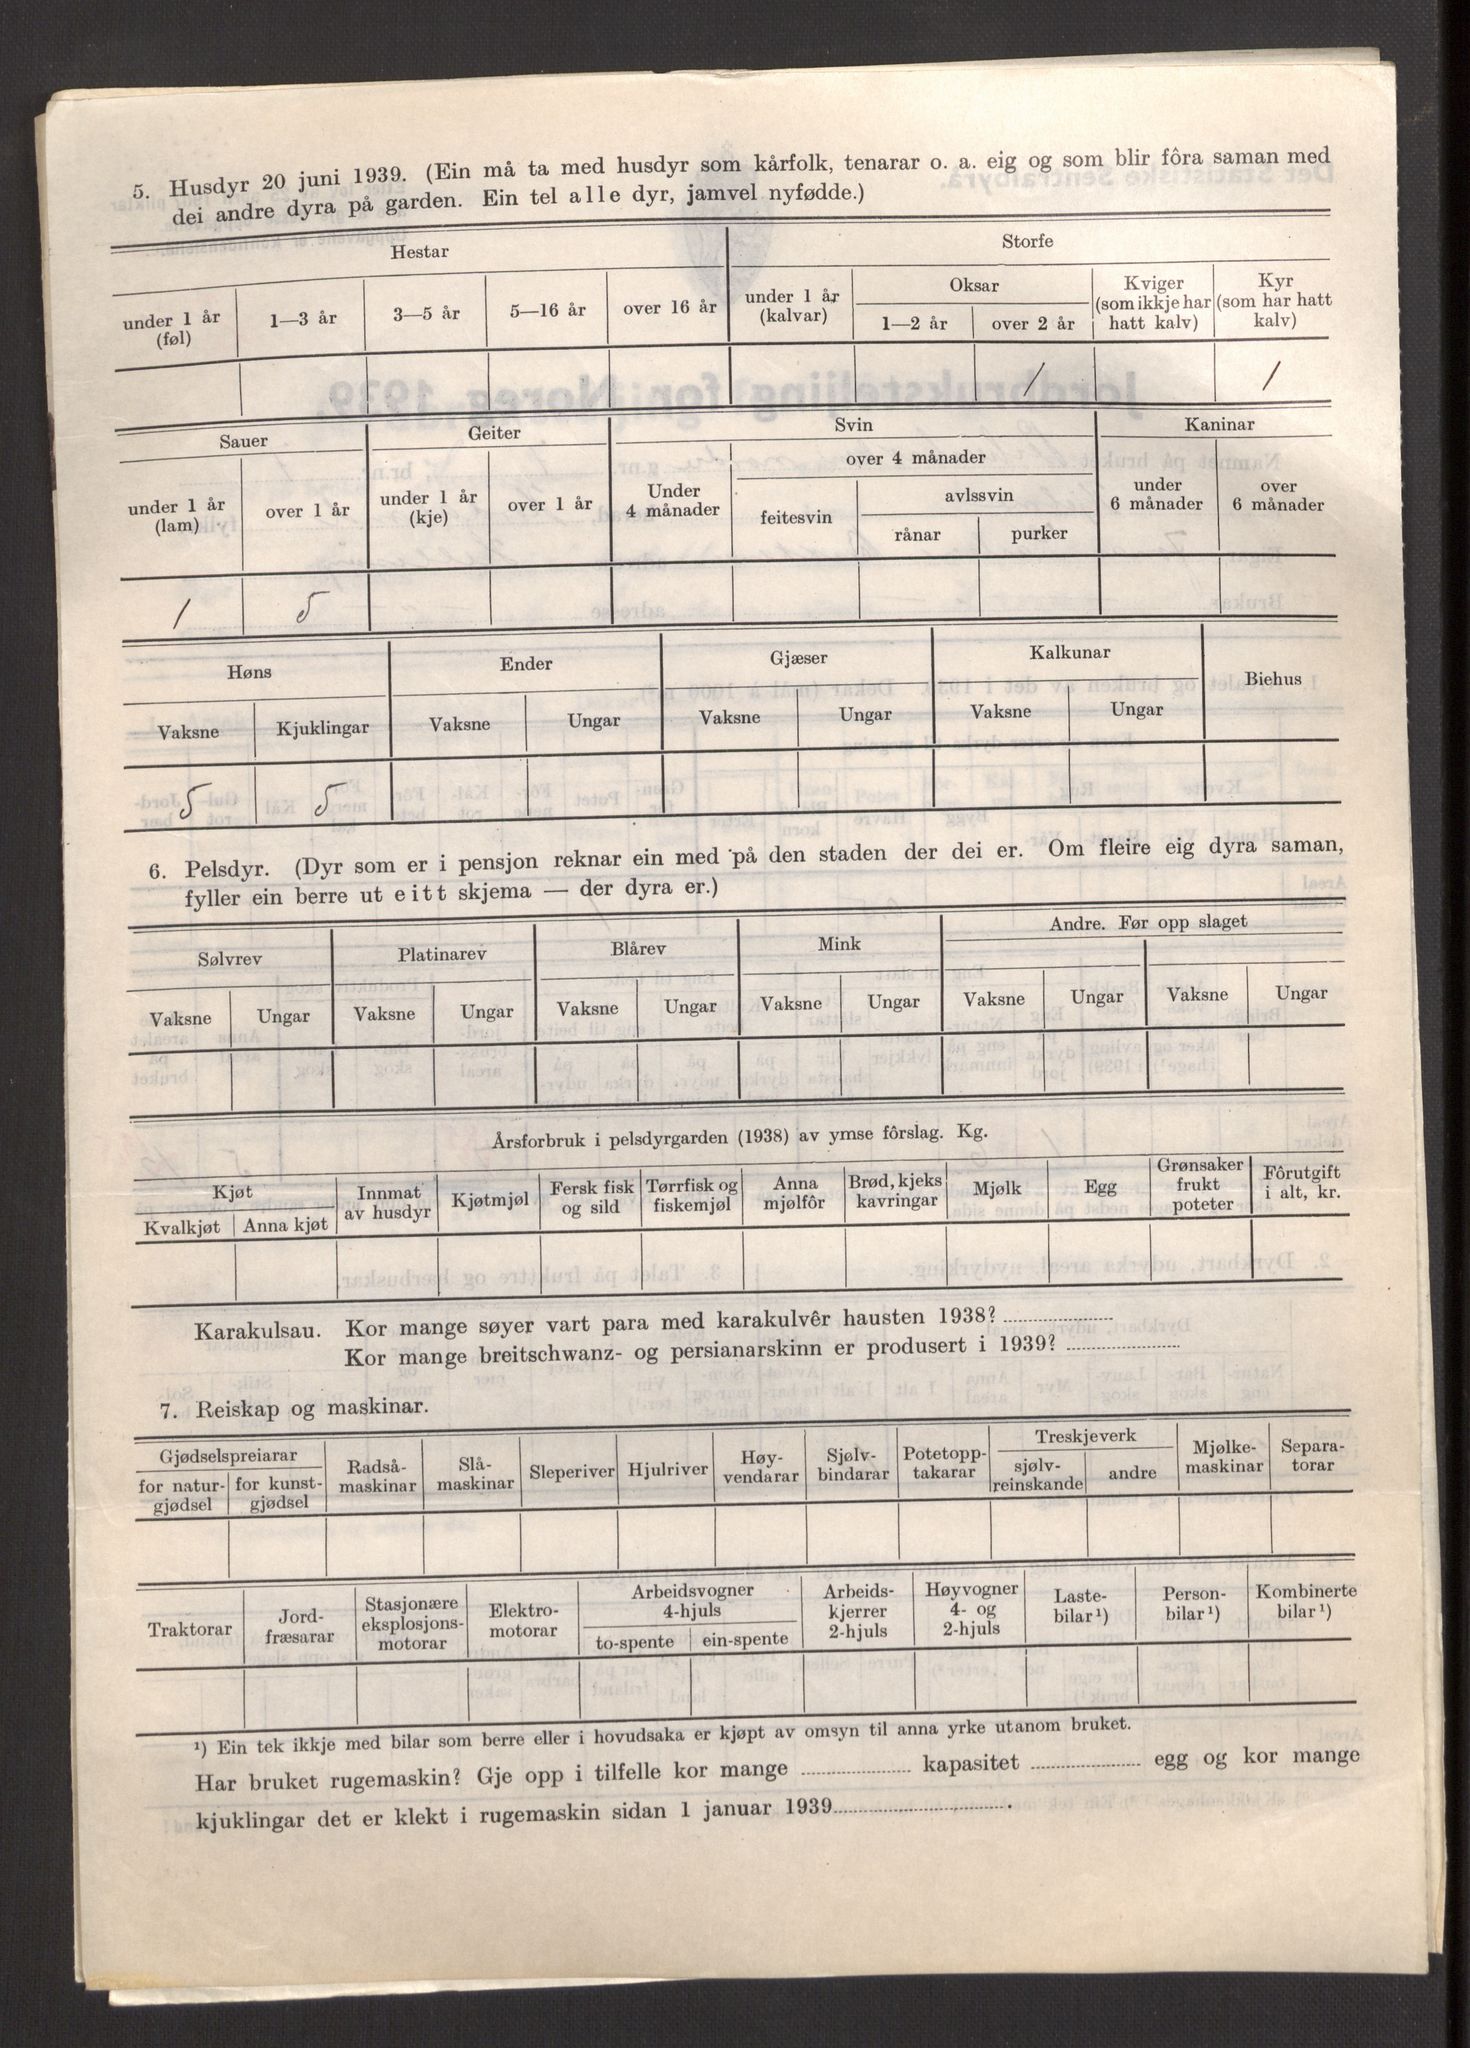 5. Husdyr 20 juni 1939. (Ein må ta med husdyr som kårfolk, tenarar o. a. eig og som blir fôra saman med
dei andre dyra på garden. Ein tel alle dyr, jamvel nyfødde.)
Hestar Storfe
under 1 år (føl) 1—3 år 3—5 år 5—16 år over 16 år under 1 år (kalvar) Oksar 1—2 år over 2 år Kviger (som ikkje har hatt kalv) Kyr (som har hatt kalv)
1 1
Sauer Geiter Svin Kaninar
over 4 månader
under 1 år (lam) over 1 år under 1 år (kje) over 1 år Under 4 månader feitesvin avlssvin rånar purker under 6 månader over 6 månader
1 5
Høns Ender Gjæser Kalkunar Biehus
Vaksne Kjuklingar Vaksne Ungar Vaksne Ungar Vaksne Ungar
5 5
6. Pelsdyr. (Dyr som er i pensjon reknar ein med på den staden der dei er. Om fleire eig dyra saman,
fyller ein berre ut eitt skjema — der dyra er.)
Sølvrev Platinarev Blårev Mink Andre. Før opp slaget
Vaksne Ungar Vaksne Ungar Vaksne Ungar Vaksne Ungar Vaksne Ungar Vaksne Ungar
Årsforbruk i pelsdyrgarden (1938) av ymse fôrslag. Kg.
Kjøt Kvalkjøt Anna kjøt Innmat av husdyr Kjøtmjøl Fersk fisk og sild Tørrfisk og fiskemjøl Anna mjølfôr Brød, kjeks kavringar Mjølk Egg Grønsaker frukt poteter Fôrutgift i alt, kr.
Karakulsau. Kor mange søyer vart para med karakulvêr hausten 1938?
Kor mange breitschwanz- og persianarskinn er produsert i 1939?
7. Reiskap og maskinar.
Gjødselspreiarar for natur-gjødsel for kunst-gjødsel Radså-maskinar Slå-maskinar Sleperiver Hjulriver Høy-vendarar Sjølv-bindarar Potetopp-takarar Treskjeverk sjølv-reinskande andre Mjølke-maskinar Separa-torar
Traktorar Jord-fræsarar Stasjonære eksplosjons-motorar Elektro-motorar Arbeidsvogner 4-hjuls to-spente ein-spente Arbeids-kjerrer 2-hjuls Høyvogner 4- og 2-hjuls Laste-bilar¹) Person-bilar¹) Kombinerte bilar¹)
¹) Ein tek ikkje med bilar som berre eller i hovudsaka er kjøpt av omsyn til anna yrke utanom bruket.
Har bruket rugemaskin? Gje opp i tilfelle kor mange kapasitet egg og kor mange
kjuklingar det er klekt i rugemaskin sidan 1 januar 1939